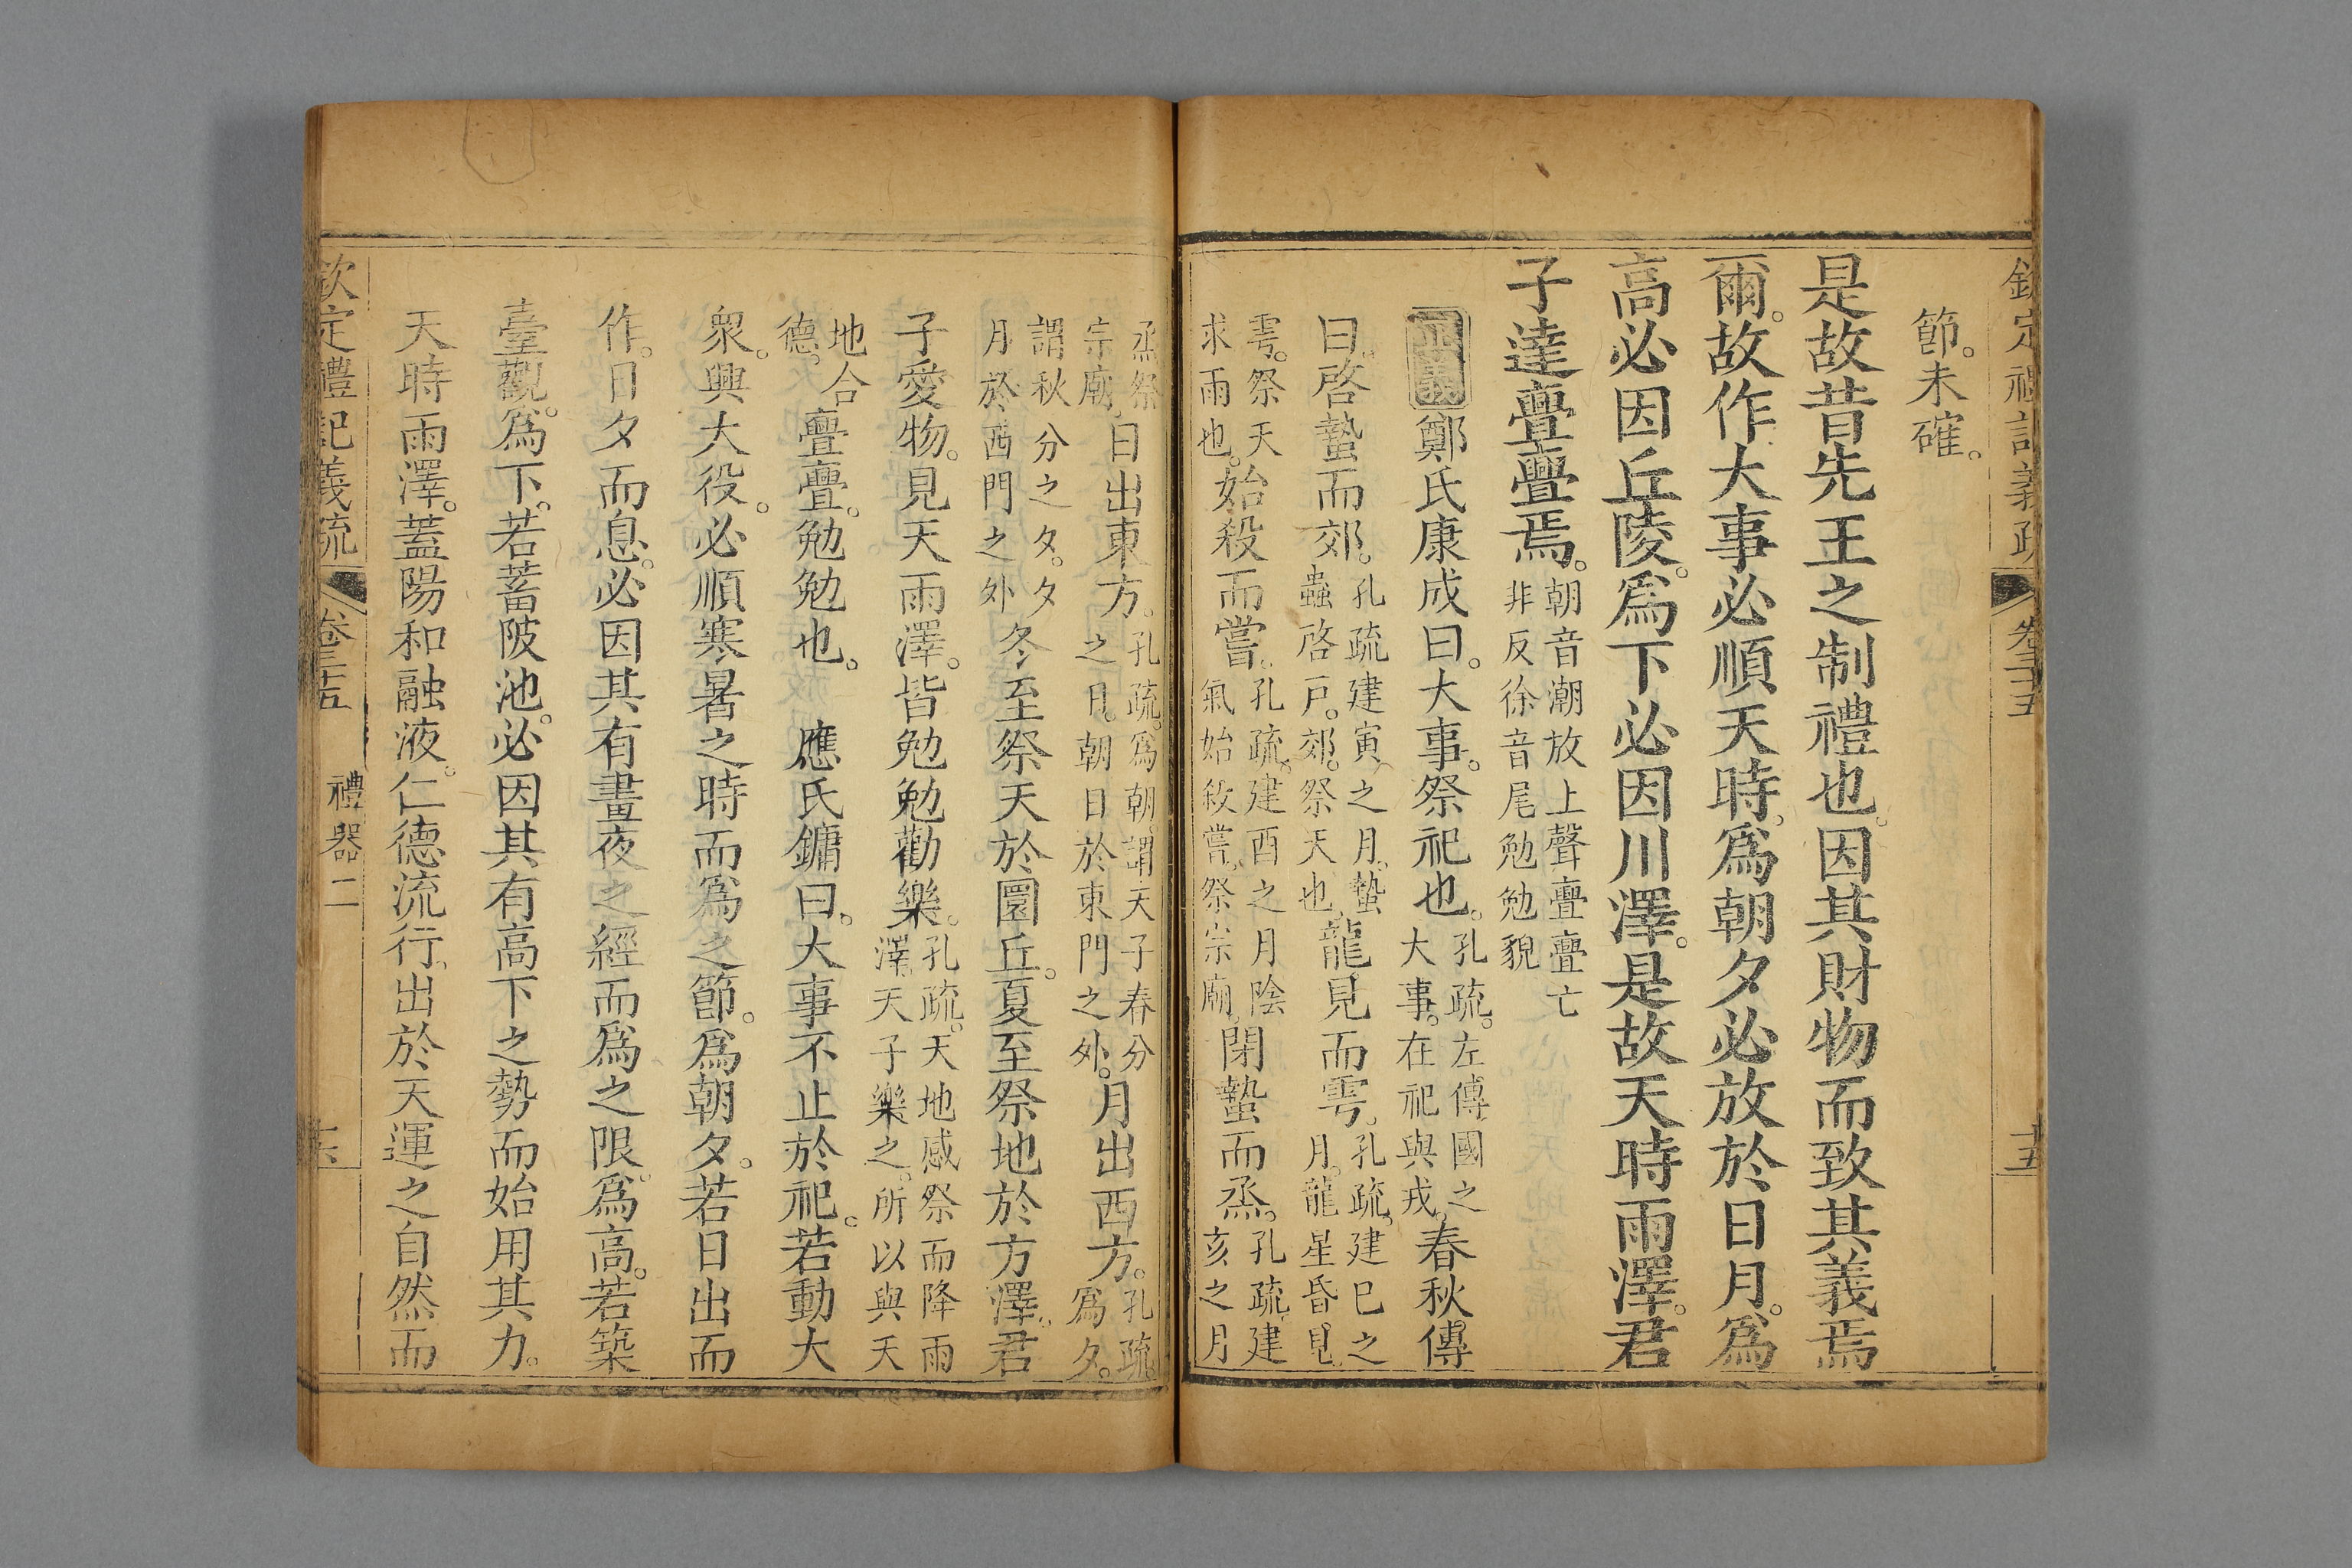 欽定禮記義疏 卷三十五 十五
節。未確。
是故昔先王之制禮也。因其財物而致其義焉
爾。故作大事必順天時。爲朝夕必放於日月。爲
高必因丘陵。爲下必因川澤。是故天時雨澤。君
子達亹亹焉。朝音潮放上聲亹亹亡
非反徐音尾勉勉貌
正義鄭氏康成曰。大事。祭祀也。孔疏。左傳國之
大事。在祀與戎。春秋傳
曰。啓蟄而郊。孔疏建寅之月。蟄
蟲啓戸。郊。祭天也。龍見而雩。孔疏。建巳之
月。龍星昏見。
雩。祭天
求雨也。始殺而嘗。孔疏。建酉之月陰
氣始殺。嘗。祭宗廟。閉蟄而烝。孔疏。建
亥之月
烝祭
宗廟。日出東方。孔疏。爲朝。謂天子春分
之月。朝日於東門之外。月出西方。孔疏
爲夕。
謂秋分之夕。夕
月於西門之外冬至祭天於圜丘。夏至祭地於方澤。君
子愛物。見天雨澤。皆勉勉勸樂。孔疏。天地感祭而降雨
澤。天子樂之。所以與天
地合
德。亹亹。勉勉也。 應氏鏞曰。大事不止於祀。若動大
衆。興大役。必順寒暑之時而爲之節。爲朝夕。若日出而
作。日夕而息。必因其有晝夜之經而爲之限。爲高。若築
臺觀。爲下。若蓄陂池。必因其有高下之勢而始用其力。
天時雨澤。蓋陽和融液。仁德流行。出於天運之自然。而
欽定禮記義疏 卷三十五 禮器二 十六